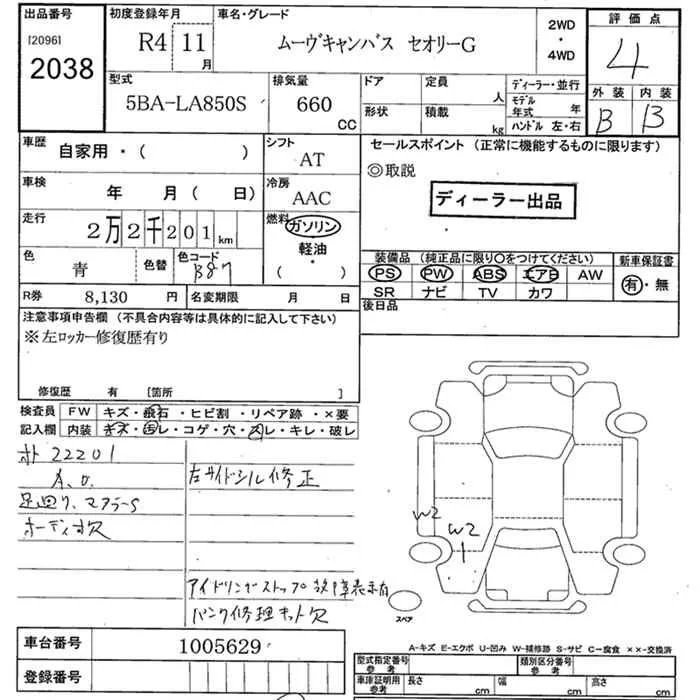 出品番号
[2096]
2038
初度登録年月
R4 11月
車名・グレード
ムーヴキャンバス セオリーG
2WD
・
4WD
評価点
4
外装 内装
B B
型式
5BA-LA850S
排気量
660
CC
ドア
形状
定員
人
積載
kg
ディーラー・並行
モデル年式 年
ハンドル 左・右
車歴
自家用・( )
シフト
AT
車検
年 月( 日)
冷房
AAC
走行
2万2千201km
燃料
ガソリン
軽油
・
色
青
色替
色コード
B87
R券 8,130 円
名変期限 月 日
セールスポイント (正常に機能するものに限ります)
◎取説
ディーラー出品
装備品 (純正品に限り○をつけてください)
PS PW ABS エアB AW
SR ナビ TV カワ
新車保証書
有・無
後日品
注意事項申告欄 (不具合内容等は具体的に記入して下さい)
※左ロッカー修復歴有り
修復歴 有 [箇所 ]
検査員
記入欄
FW キズ・飛石・ヒビ割・リペア跡・×要
内装 キズ・汚レ・コゲ・穴・スレ・キレ・破レ
オト 22201
A.O.
足廻り、マフラーS
オーディオ欠
左サイドシル修正
アイドリングストップ故障表示有
パンク修理キット欠
W2
W2
1
スペア
A-キズ E-エクボ U-凹み W-補修跡 S-サビ C-腐食 ××-交換済
車台番号 1005629
登録番号
型式指定番号
参考
類別区分番号
参考
車庫証明用
参考
長さ cm
幅 cm
高さ cm